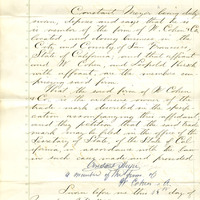 Constant Meyer being duly
sworn, deposes and says that he is
a member of the firm of W. Cohen & Co
located and doing business in the
City and County of San Francisco,
State of California, and that affiant
and W. Cohen and Leopold
with affiant, are the members com-
prising said firm.
That the said firm of W. Cohen
& Co. is the exclusive owner of the
trade mark described in the speci-
fication accompanying this affidavit
and they petition that the said trade
mark may be filed in the office of the
Secretary of State, of the State of Cal-
ifornia in accordance with the law
in such case made and provided.
Constant Meyer
a member of the firm of
W. Cohen & Co
Sworn before me this 18th day of